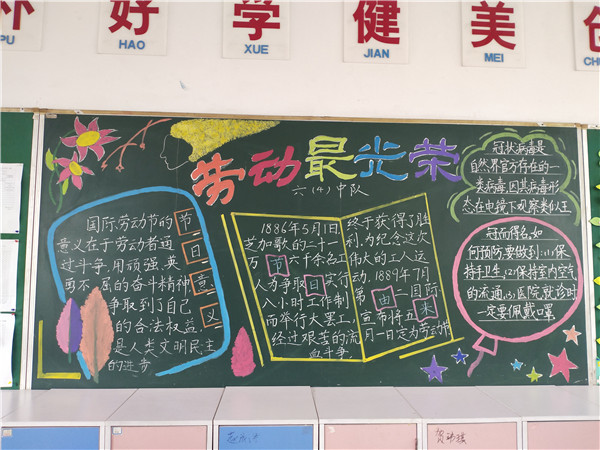 好 学 健 美
PU HAO XUE JIAN MEI
劳动最光荣
六（4）中队
国际劳动节的
意义在于劳动者通
过斗争,用顽强、英
勇不屈的奋斗精神,
争取到了自己
的合法权益,
是人类文明民主
的进步
节
日
意
义
1886年5月1日,
芝加哥的二十一
万六千余名工
人为争取实行
八小时工作制
而举行大罢工,
经过艰苦的流
血斗争,
节
日
终于获得了胜
利,为纪念这次
伟大的工人运
动,1889年7月
第二国际
宣布将五
月一日定为劳动节
由
来
冠状病毒是
自然界官方存在的一
类病毒,因其病毒形
态在电镜下观察类似王
冠而得名,如
何预防要做到:(1)保
持手卫生,(2)保持室内空气
的流通,(3)医院就诊时
一定要佩戴口罩